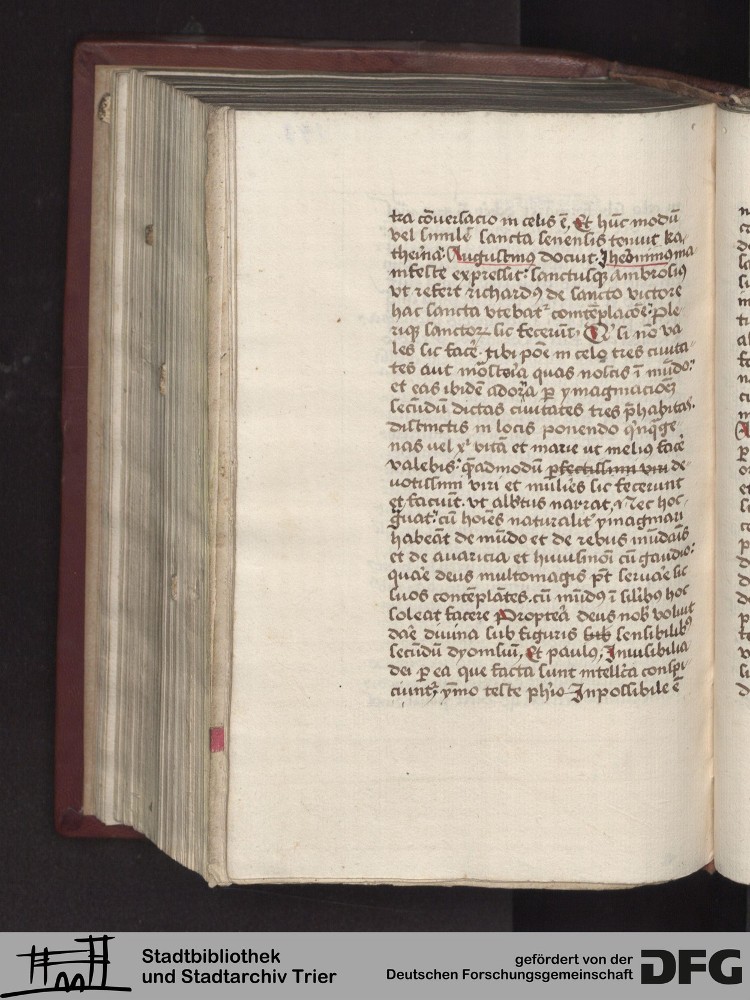 tra cōuersacio in celis ē, Et hūc modū
vel simile sancta senensis tenuit ka,
therina. Augustinus docuit. Iheronimus ma
nifeste expressit: sanctusque ambrosius
vt refert richardus de sancto victore
hac sancta vtebat contēplacōe: ple
rique sanctorum sic fecerūt, si nō va
les sic facē. tibi pōe in celo tres ciuita
tes aut mōstra quas noscis ī mūdo:
et eas ibidē adora per ymaginaciōes
secūdū dictas ciuitates tres
distinctis in locis ponendo
nas vel xi vitā et marie ut melius facē
valebis: quadmodū perfectissimi viri de-
uotissimi viri et mulieres sic fecerunt
et faciūt. vt albertus narrat, Nec hoc
cū hoīes naturalit ymaginari
habeāt de mūdo et de rebus mūdanis
et de auaricia et huiusmōi cū gaudio:
quare deus multomagis pt seruare sic
suos contēplātes. cū mūdus ī silibus hoc
soleat facere Proptea deus nob voluit
dare diuina sub figuris sensibilibus
secūdū dyonisiū, Et paulus, Inuisibilia
dei per ea que facta sunt intellca conspi-
ciuntur, ymo teste pho Inpossibile ē
Stadtbibliothek
und Stadtarchiv Trier
gefördert von der
Deutschen Forschungsgemeinschaft
DFG